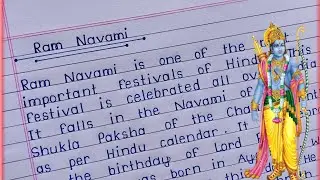 Ram Navami
Ram Navami is one of the
important festivals of Hind This
festival is celebrated all ov India
It falls in the Navami of
Shukla Paksha of the Cha
as per Hindu calendar. It
the birthday of Lord
was born in Ay
this